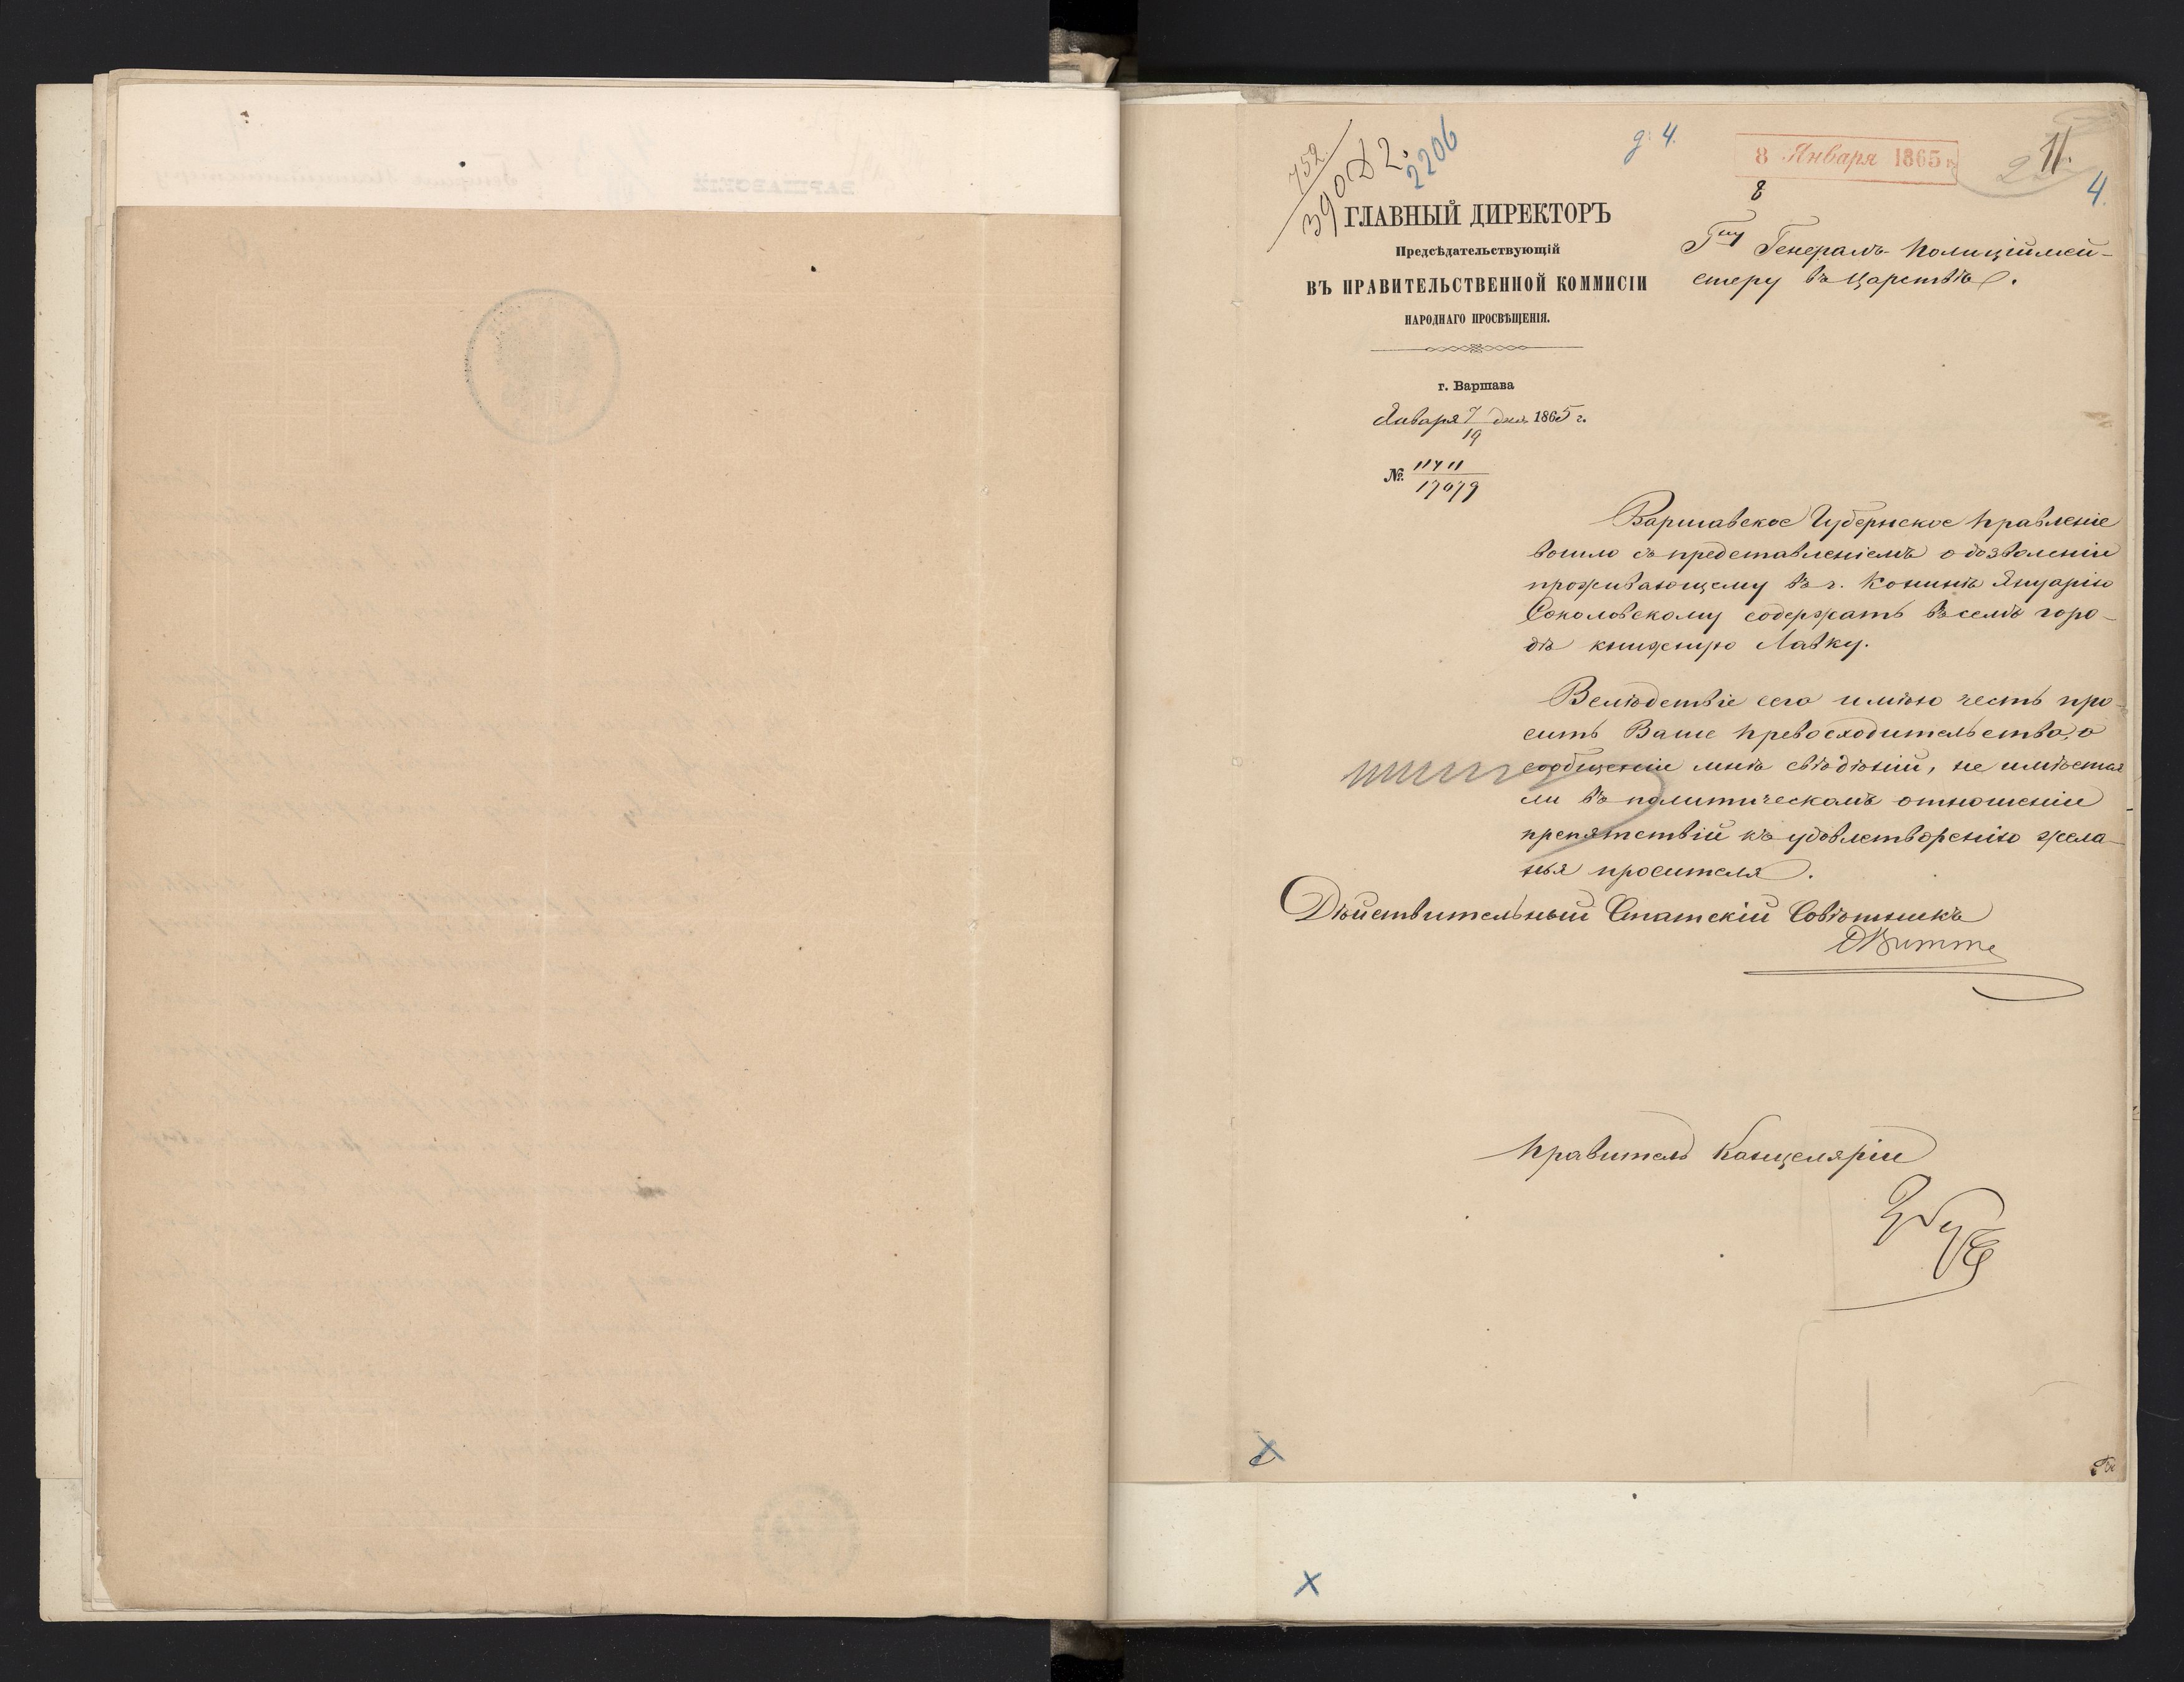 752.
390 D 2.
2206
д. 4.
8 Января 1865 г.
8
11.
4.
ГЛАВНЫЙ ДИРЕКТОРЪ
Предсѣдательствующій
ВЪ ПРАВИТЕЛЬСТВЕННОЙ КОММИСІИ
НАРОДНАГО ПРОСВѢЩЕНІЯ.
г. Варшава
Января 7/19 дня 1865 г.
№ 11711/17079
Гну Генералъ-Полиціймей-
стеру въ Царствѣ.
Варшавское Губернское Правленіе
вошло съ представленіемъ о дозволеніи
проживающему въ г. Конинѣ Януарію
Соколовскому содержать въ семъ горо-
дѣ книжную Лавку.
Вслѣдствіе сего имѣю честь про-
сить Ваше Превосходительство, о
сообщеніи мнѣ свѣдѣній, не имѣется
ли въ политическомъ отношеніи
препятствій къ удовлетворенію жела-
нья просителя.
Дѣйствительный Статскій Совѣтникъ
Ѳ Витте
Правитель Канцеляріи